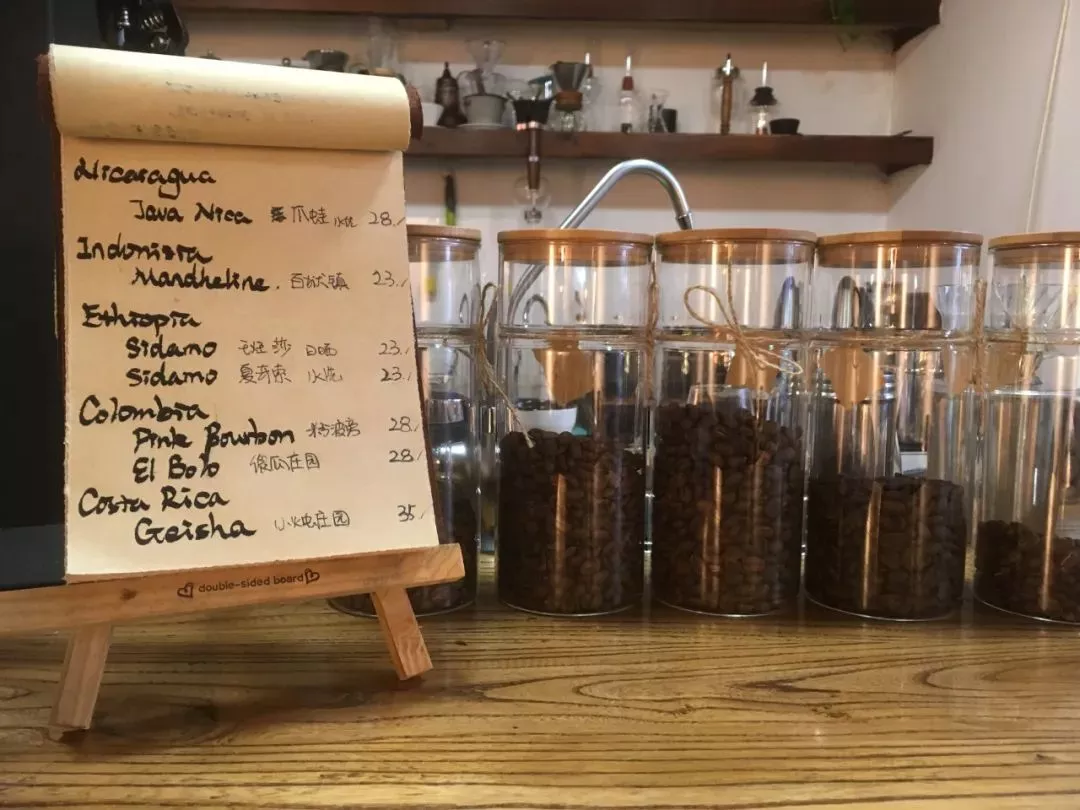 Nicaragua
Java Nica 爪蛙 水洗 28./
Indonisia
Mandheline. 23./
Ethiopia
Sidamo 日晒 23./
Sidamo 水洗 23./
Colombia
Pink Bourbon 28./
El Bolo 傻瓜庄园 28./
Costa Rica
Geisha 庄园 35./
double-sided board